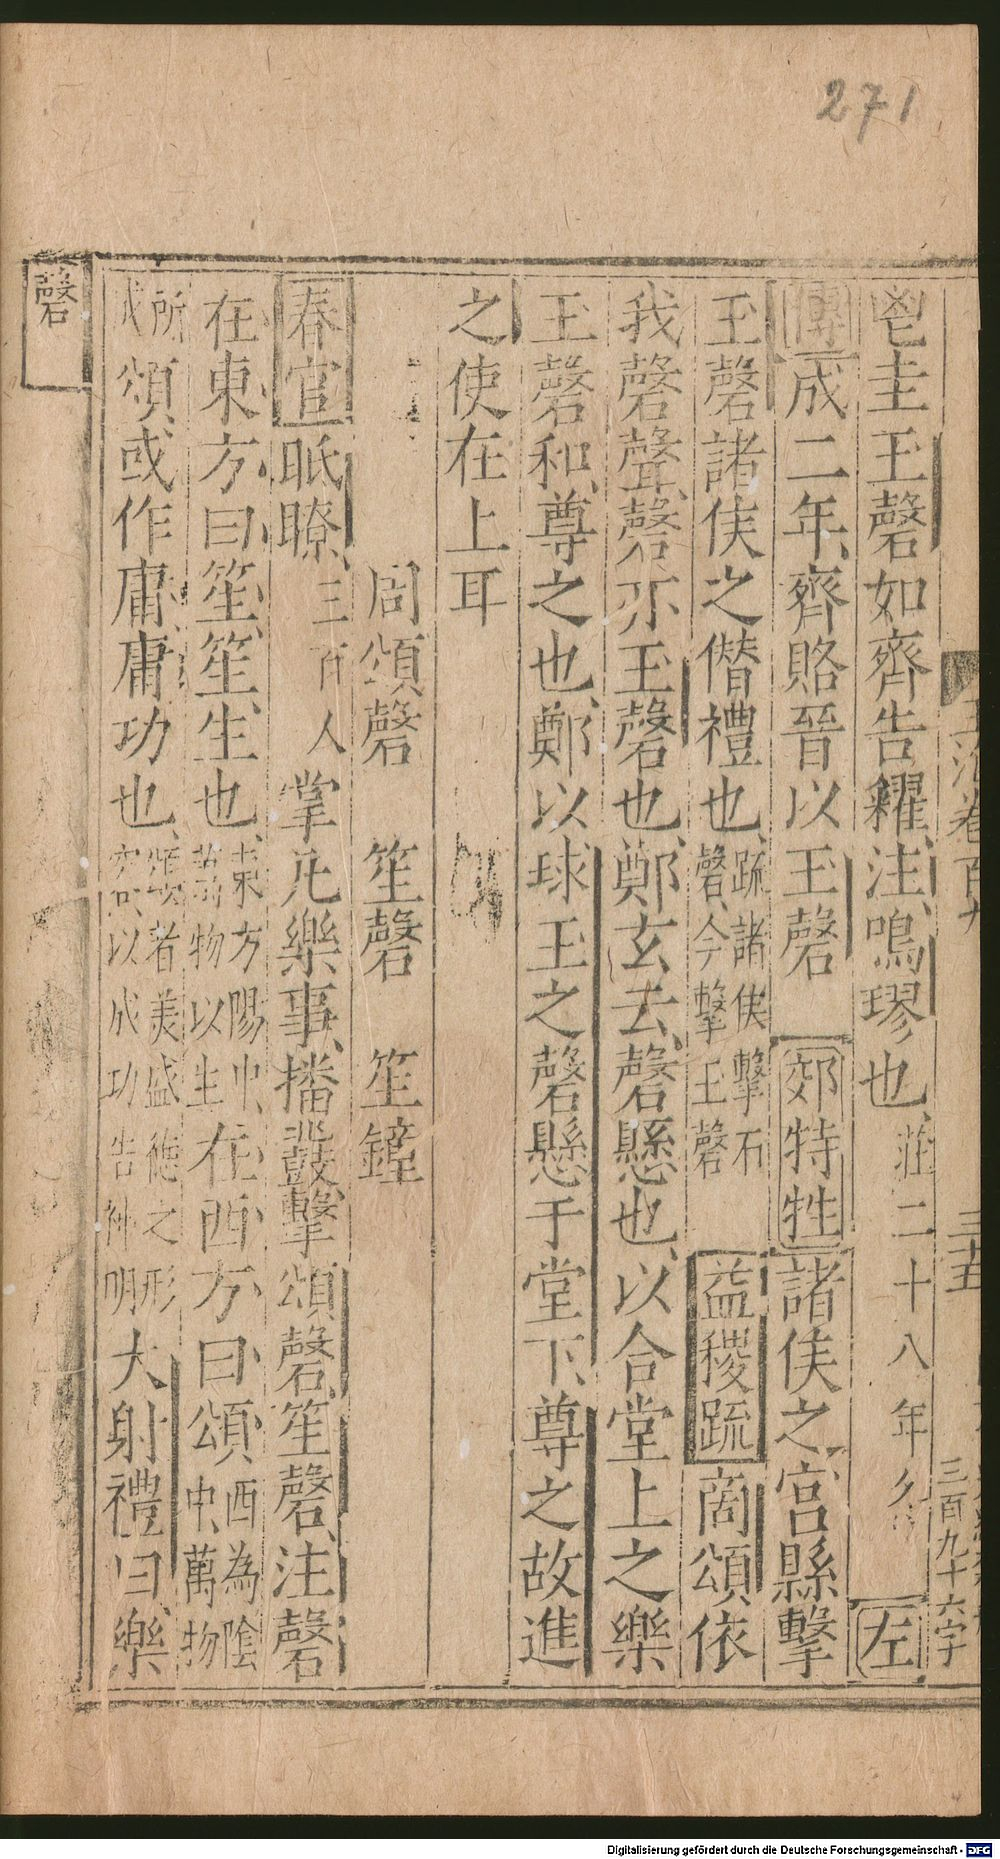 271
玉海卷百九
三十五
三百九十六字
鬯圭玉磬如齊告糴注鳴璆也莊二十八年冬 左
傳成二年齊賂晉以玉磬 郊特牲諸侯之宮縣擊
玉磬諸侯之僭禮也疏諸侯擊石磬今擊玉磬 益稷疏商頌依
我磬聲磬亦玉磬也鄭玄云磬懸也以合堂上之樂
玉磬和尊之也鄭以球玉之磬懸于堂下尊之故進
之使在上耳
周頌磬 笙磬 笙鐘
春官眡瞭三百人掌凡樂事播鼗擊頌磬笙磬注磬
在東方曰笙笙生也東方陽中萬物以生在西方曰頌西為陰中萬物
所成頌或作庸庸功也頌者美盛德之形容以成功告神明大射禮曰樂
磬
Digitalisierung gefördert durch die Deutsche Forschungsgemeinschaft - DFG